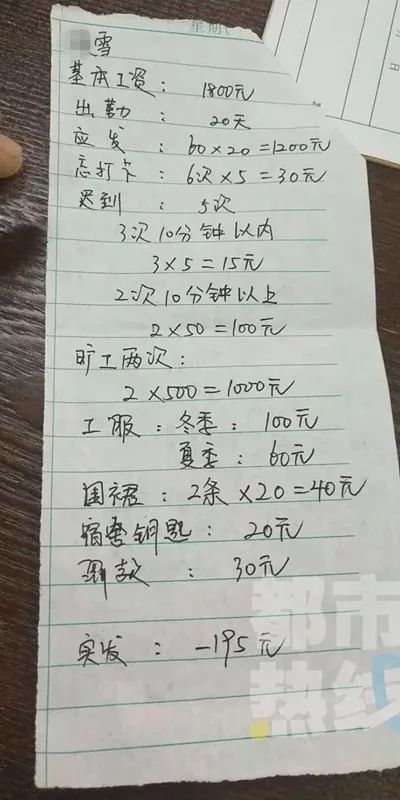 星期
雪
基本工资: 1800元
出勤: 20天
应发: 60×20=1200元
忘打卡: 6次×5=30元
迟到: 5次
3次10分钟以内
3×5=15元
2次10分钟以上
2×50=100元
旷工两次:
2×500=1000元
工服: 冬季: 100元
夏季: 60元
围裙: 2条×20=40元
宿舍钥匙: 20元
罚款: 30元
实发: -195元
都市
热线